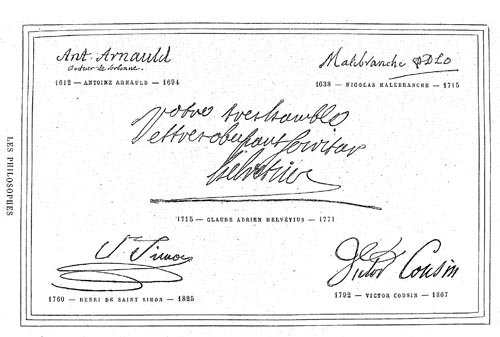 LES PHILOSOPHES
Ant. Arnauld
docteur de Sorbonne.
1612 — ANTOINE ARNAULD — 1694
Malebranche PDLO
1638 — NICOLAS MALEBRANCHE — 1715
votre tres humble
Et tres obeissant serviteur
helvetius
1715 — CLAUDE ADRIEN HELVÉTIUS — 1771
St Simon
1760 — HENRI DE SAINT SIMON — 1825
Victor Cousin
1792 — VICTOR COUSIN — 1867